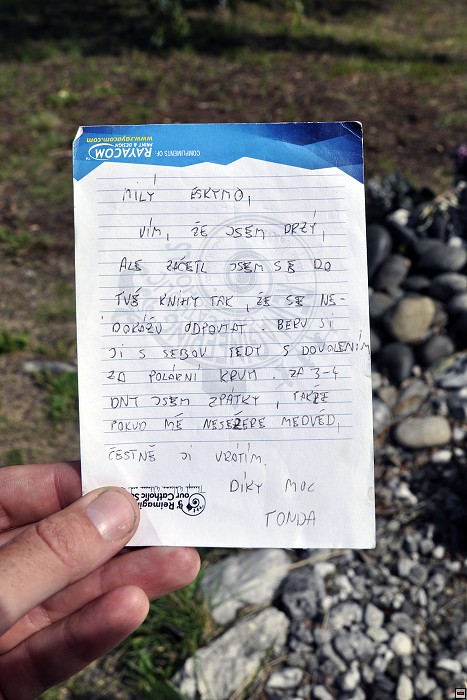 COMPLIMENTS OF:
RAYACOM™
PRINT & DESIGN
www.rayacom.com
MILÝ ESKYMO,
VÍM, ŽE JSEM DRZÝ,
ALE ZAČETL JSEM SE DO
TVÉ KNIHY TAK, ŽE SE NE-
DOKÁŽU ODPOUTAT. BERU SI
JI S SEBOU TEDY S DOVOLENÍM
ZA POLÁRNÍ KRUH. ZA 3-4
DNY JSEM ZPÁTKY, TAKŽE
POKUD MĚ NESEŽERE MEDVĚD,
ČESTNĚ JI VRÁTÍM.
DÍKY MOC
TONDA
Reimagining
our Catholic